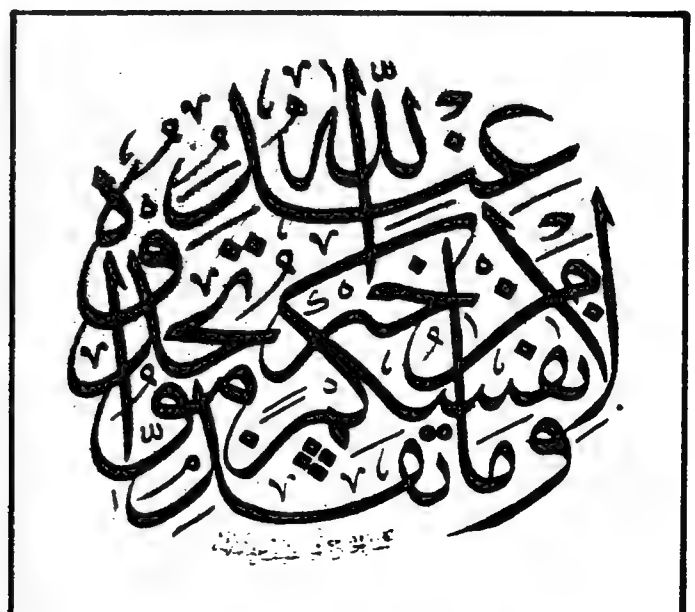 وَمَا تُقَدِّمُوا
لِأَنْفُسِكُمْ مِنْ خَيْرٍ تَجِدُوهُ
عِنْدَ اللَّهِ